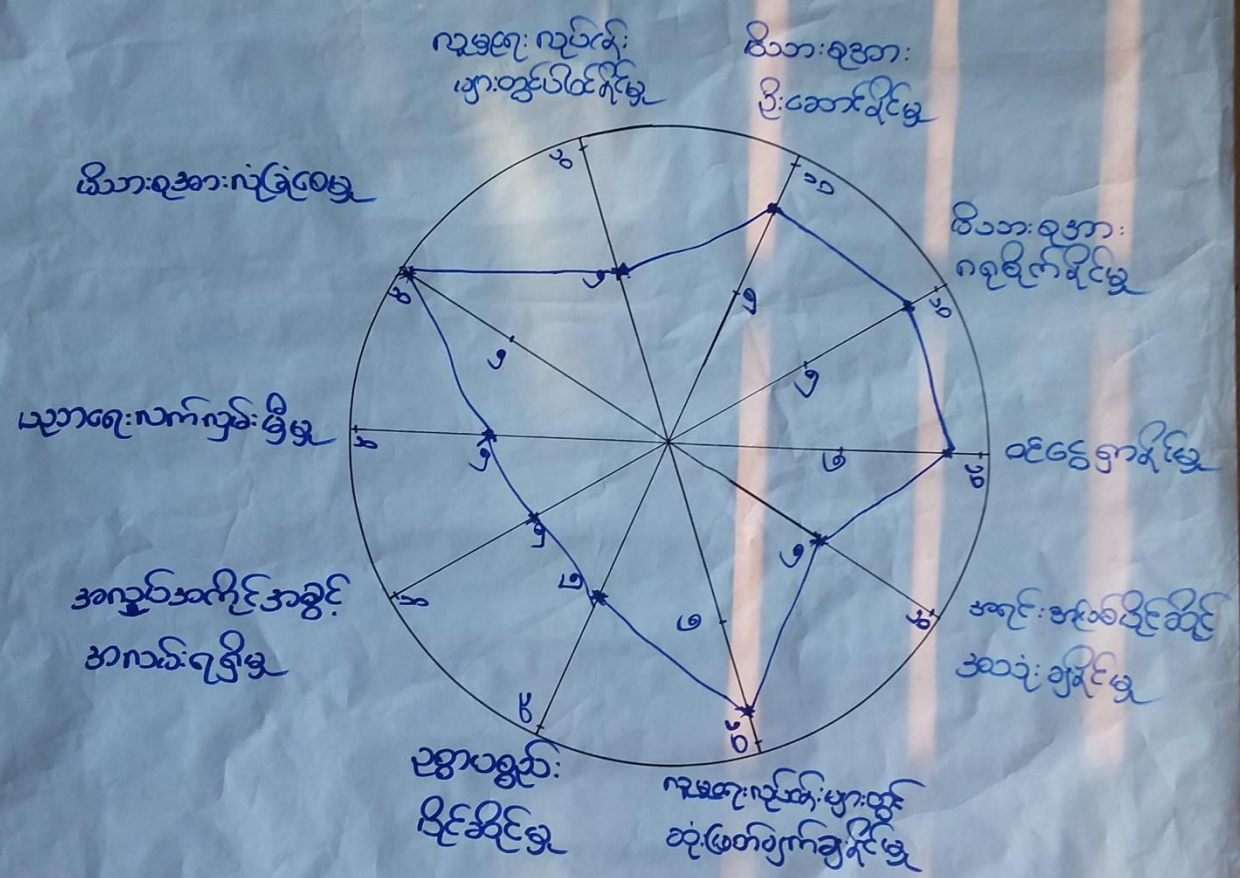 လူမှုရေး လုပ်ငန်း
များတွင်ပါဝင်နိုင်မှု
မိသားစုအား
ဦးဆောင်နိုင်မှု
မိသားစုအား
ဂရုစိုက်နိုင်မှု
ဝင်ငွေရှာနိုင်မှု
အရင်းအမြစ်ပိုင်ဆိုင်
အသုံးချနိုင်မှု
လူမှုရေးလုပ်ငန်းများတွင်
ဆုံးဖြတ်ချက်ချနိုင်မှု
ဥစ္စာပစ္စည်း
ပိုင်ဆိုင်မှု
အလုပ်အကိုင်အခွင့်
အလမ်းရရှိမှု
ပညာရေးလက်လှမ်းမှီမှု
မိသားစုအားလုံခြုံစေမှု
၁၀
၅
၁၀
၅
၁၀
၅
၁၀
၅
၁၀
၅
၁၀
၅
၁၀
၅
၁၀
၅
၁၀
၅
၁၀
၅